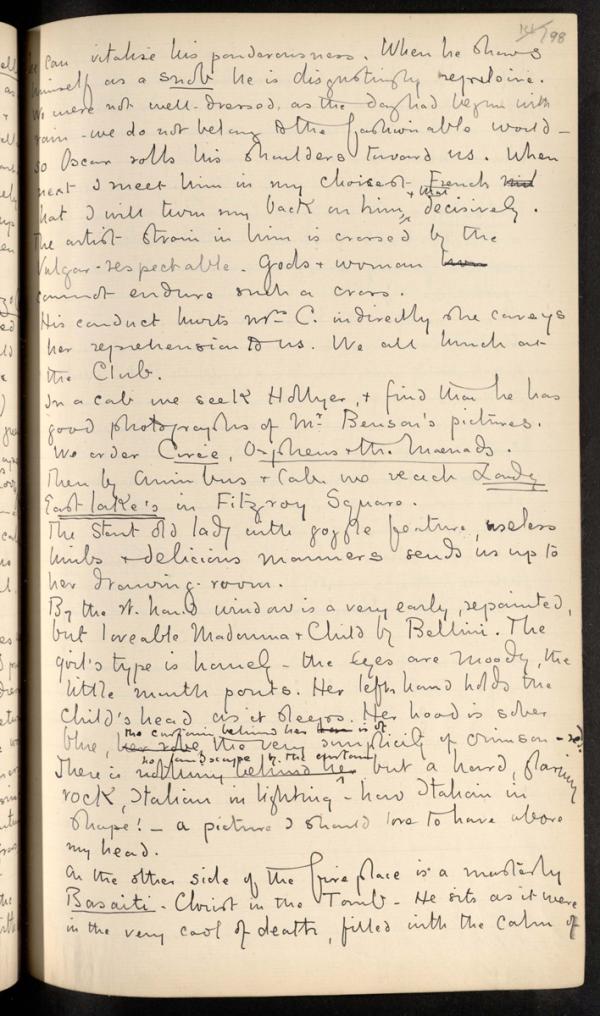 198
can vitalise his ponderousness. When he shows
himself as a snob he is disgustingly repreloire.
We were not well-dressed, as the day had begun with
rain - we do not belong to the fashionable world -
so Oscar rolls his shoulders toward us. When
next I meet him in my choicest French
hat I will turn my back on him, + that decisively.
The artist strain in him is crossed by the
Vulgar-respectable. Gods + woman
cannot endure such a cross.
His conduct hurts Mrs C. indirectly she conveys
her reprehension to us. We all lunch at
the Club.
In a cab we seek Hollyer, + find that he has
good photographs of Mr Benson's pictures.
We order Circe, Orpheus + the Maenads.
Then by omnibus + cab we reach Lady
Eastlake's in Fitzroy Square.
The stout old lady with goggle feature, useless
limbs + delicious manners sends us up to
her drawing-room.
By the rt. hand window is a very early, repainted,
but loveable Madonna + Child by Bellini. The
girl's type is homely - the eyes are moody, the
little mouth pouts. Her left hand holds the
Child's head as it sleeps. Her hood is sober
blue, her robe, the curtain behind her is of the very simplicity of crimson - red.
There is nothing behind her no landscape by the curtain but a hard, flaring
rock, Italian in lighting - how Italian in
shape! - a picture I should love to have above
my head.
On the other side of the fire place is a masterly
Basaiti - Christ in the Tomb - He sits as it were
in the very cool of death, filled with the calm of